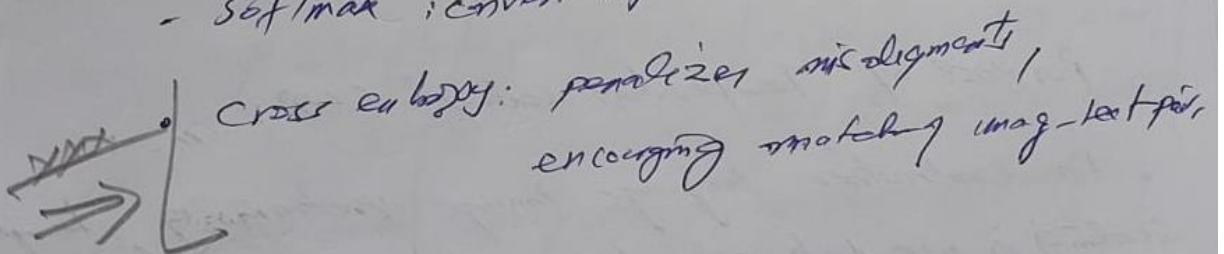 - Softmax :
Cross entropy: penalizes misaligments,
encourging matching imag-text pair,